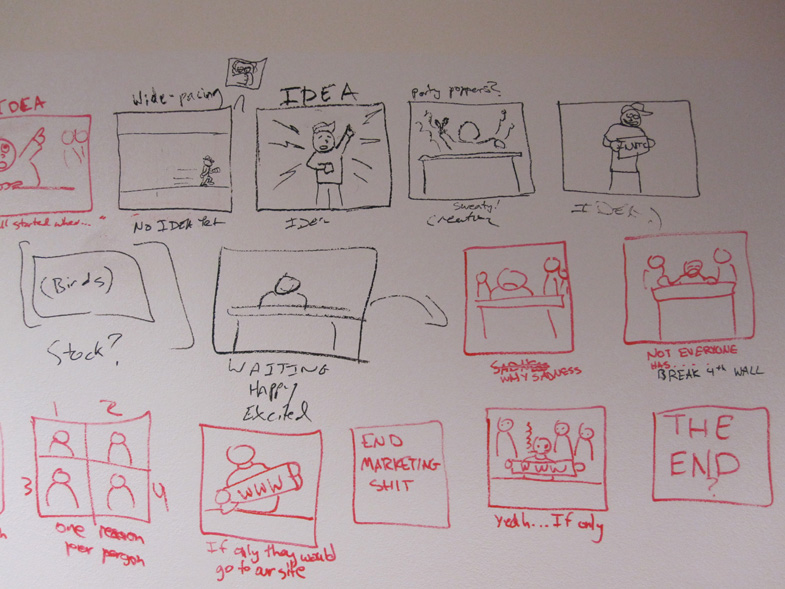 IDEA
Wide-pacing
IDEA
Party poppers?
all started when...
NO IDEA Yet
IDEA
Sweaty!
Creating
IDEA
(Birds)
Stock?
WAITING
Happy
Excited
SADNESS
WHY SADNESS
NOT EVERYONE
HAS....
BREAK 4th WALL
1 2
3 4
one reason
per person
WWW
If only they would
go to our site
END
MARKETING
SHIT
WWW
Yeah... If only
THE
END
?